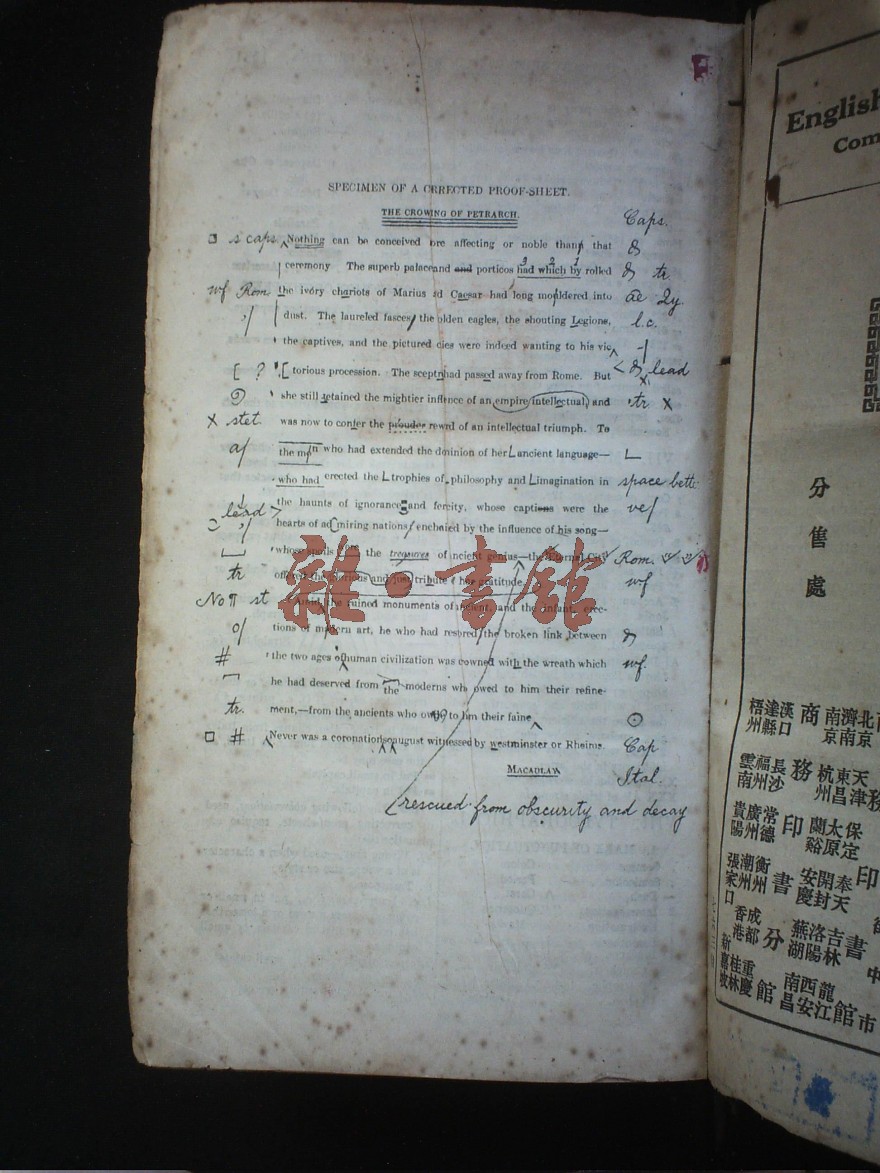 SPECIMEN OF A CRRECTED PROOF-SHEET.
THE CROWING OF PETRARCH.
Caps.
s caps. Nothing can be conceived ore affecting or noble than that
ceremony The superb palaceand and porticos had which by rolled tr
3 2 1
wf Rom. the ivory chariots of Marius ad Caesar had long moldered into
dust. The laureled fasces, the olden eagles, the shouting Legions, l.c.
the captives, and the pictured cies were indeed wanting to his vic
? torious procession. The sceptrhad passed away from Rome. But lead
she still retained the mightier inflence of an empire intellectual, and tr x
x stet was now to confer the prouder rewrd of an intellectual triumph. To
a/ the man who had extended the dominion of her ancient language—
who had erected the trophies of philosophy and imagination in space bette
the haunts of ignorance and fercity, whose captions were the ve/
lead
hearts of admiring nations enchaied by the influence of his song—
whose spoils the treasures of ancient genius—the Eternal City Rom.
tr offered the glorious and just tribute her gratitude. wf
No ¶ st Amid the ruined monuments of ancient, and the infant erec-
o/ tions of modern art, he who had restored the broken link between
# the two ages of human civilization was cowned with the wreath which wf.
he had deserved from the moderns who owed to him their refine-
tr. ment,—from the ancients who owed to him their fame
# Never was a coronation so august witnessed by westminster or Rheims. Cap
MACAULAY Ital.
rescued from obscurity and decay
雜·書館
English
Com
分售處
商務印書分館
漢口 達縣 梧州
北京 濟南 南京
長沙 福州 雲南
天津 東昌 杭州
常德 廣州 貴陽
保定 太原 蘭谿
衡州 潮州 張家口
奉天 開封 安慶
成都 香港
吉林 洛陽 蕪湖
重慶 桂林
龍江 西安 南昌
印書館
市
中